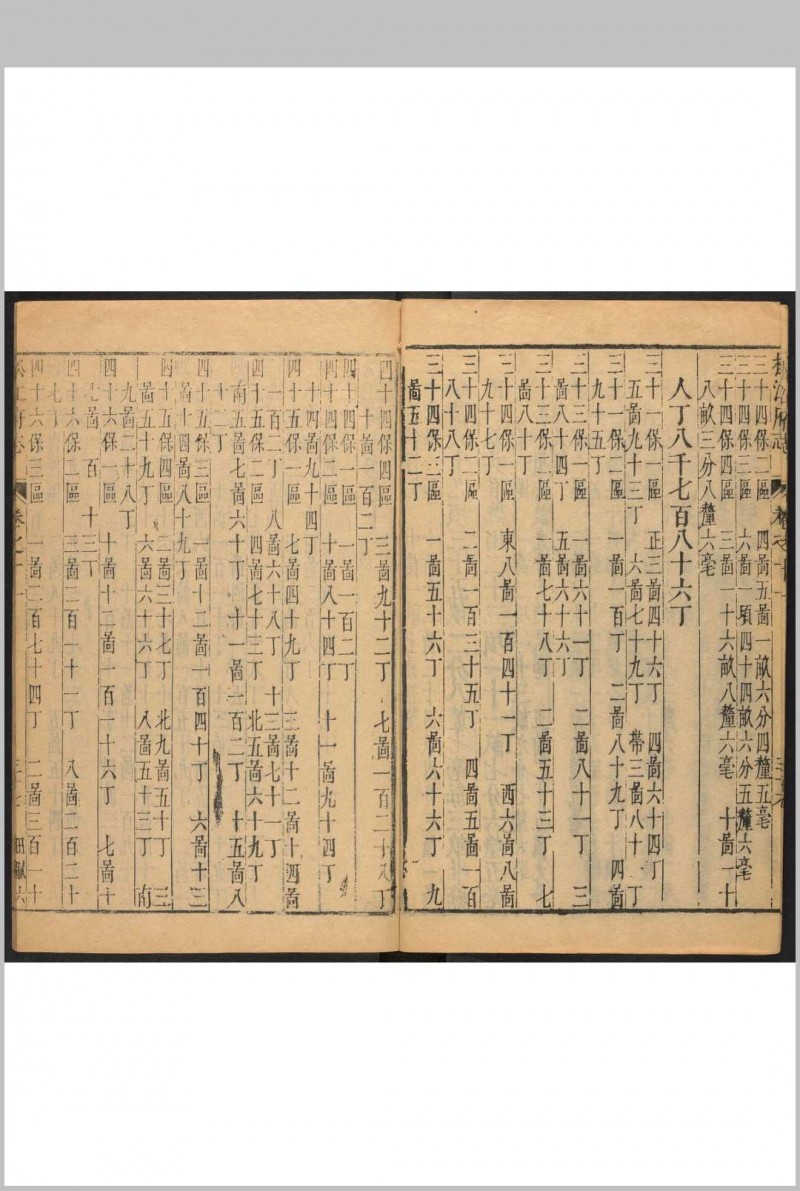 三十四保二區　四啚五啚一畝六分四釐五毫
三十四保三區　六啚一頃四十四畝六分五釐六毫
三十四保四區　三啚一十六畝八釐六毫　十啚一十
八畝三分八釐六毫
人丁八千七百八十六丁
三十一保一區　正三啚四十六丁　四啚六十四丁
五啚九十三丁　六啚七十九丁　帶三啚八十一丁
三十一保二區　一啚一百丁　二啚八十九丁　四啚
九十五丁
三十三保一區　一啚六十一丁　二啚八十一丁　三
啚八十四丁　五啚六十六丁
三十三保二區　一啚七十八丁　二啚五十三丁　七
啚八十丁
三十四保一區　東八啚一百四十一丁　西六啚八啚
九十七丁
三十四保二區　二啚一百三十五丁　四啚五啚一百
八十八丁
三十四保三區　一啚五十六丁　六啚六十六丁　九
啚五十二丁
三十四保四區　三啚九十二丁　七啚一百二十八丁
十啚一百二丁
四十四保一區　一啚一百二丁
四十四保二區　十啚八十四丁　十一啚九十四丁
十四啚九十四丁
四十五保一區　七啚四十九丁　三啚十二啚十四啚
一百二丁　八啚六十八丁　十三啚七十一丁
四十五保二區　四啚七十三丁　北五啚六十九丁
南五啚七啚六十丁　十一啚一百二丁　十五啚八
十二丁
四十五保三區　一啚十二啚一百四十丁　六啚十三
啚十四啚八十九丁
四十五保四區　二啚三十七丁　北九啚五十丁　三
啚五十九丁　六啚六十六丁　八啚五十三丁　南
九啚二十八丁
四十六保一區　十啚十二啚一百一十六丁　七啚十
啚一百　十三丁
四十六保二區　三啚二百一十一丁　八啚二百二十
七丁
四十六保三區　一啚二百七十四丁　二啚三百一十
松江府志　卷之十一　田賦六